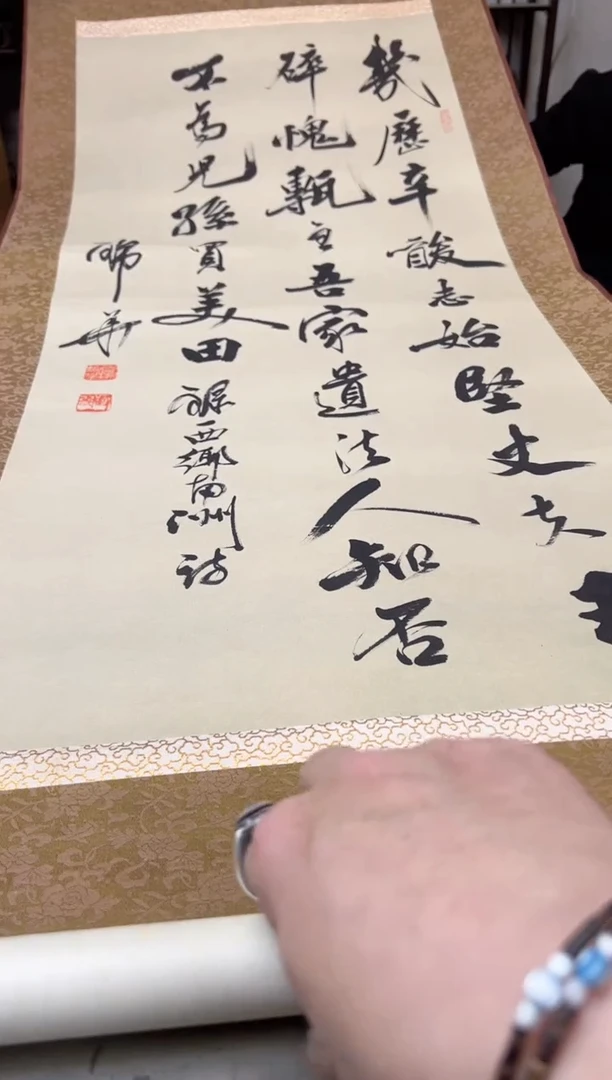 幾歷辛酸志始堅丈夫玉
碎愧甎全吾家遺法人知否
不為兒孫買美田 録西鄉南洲詩
華